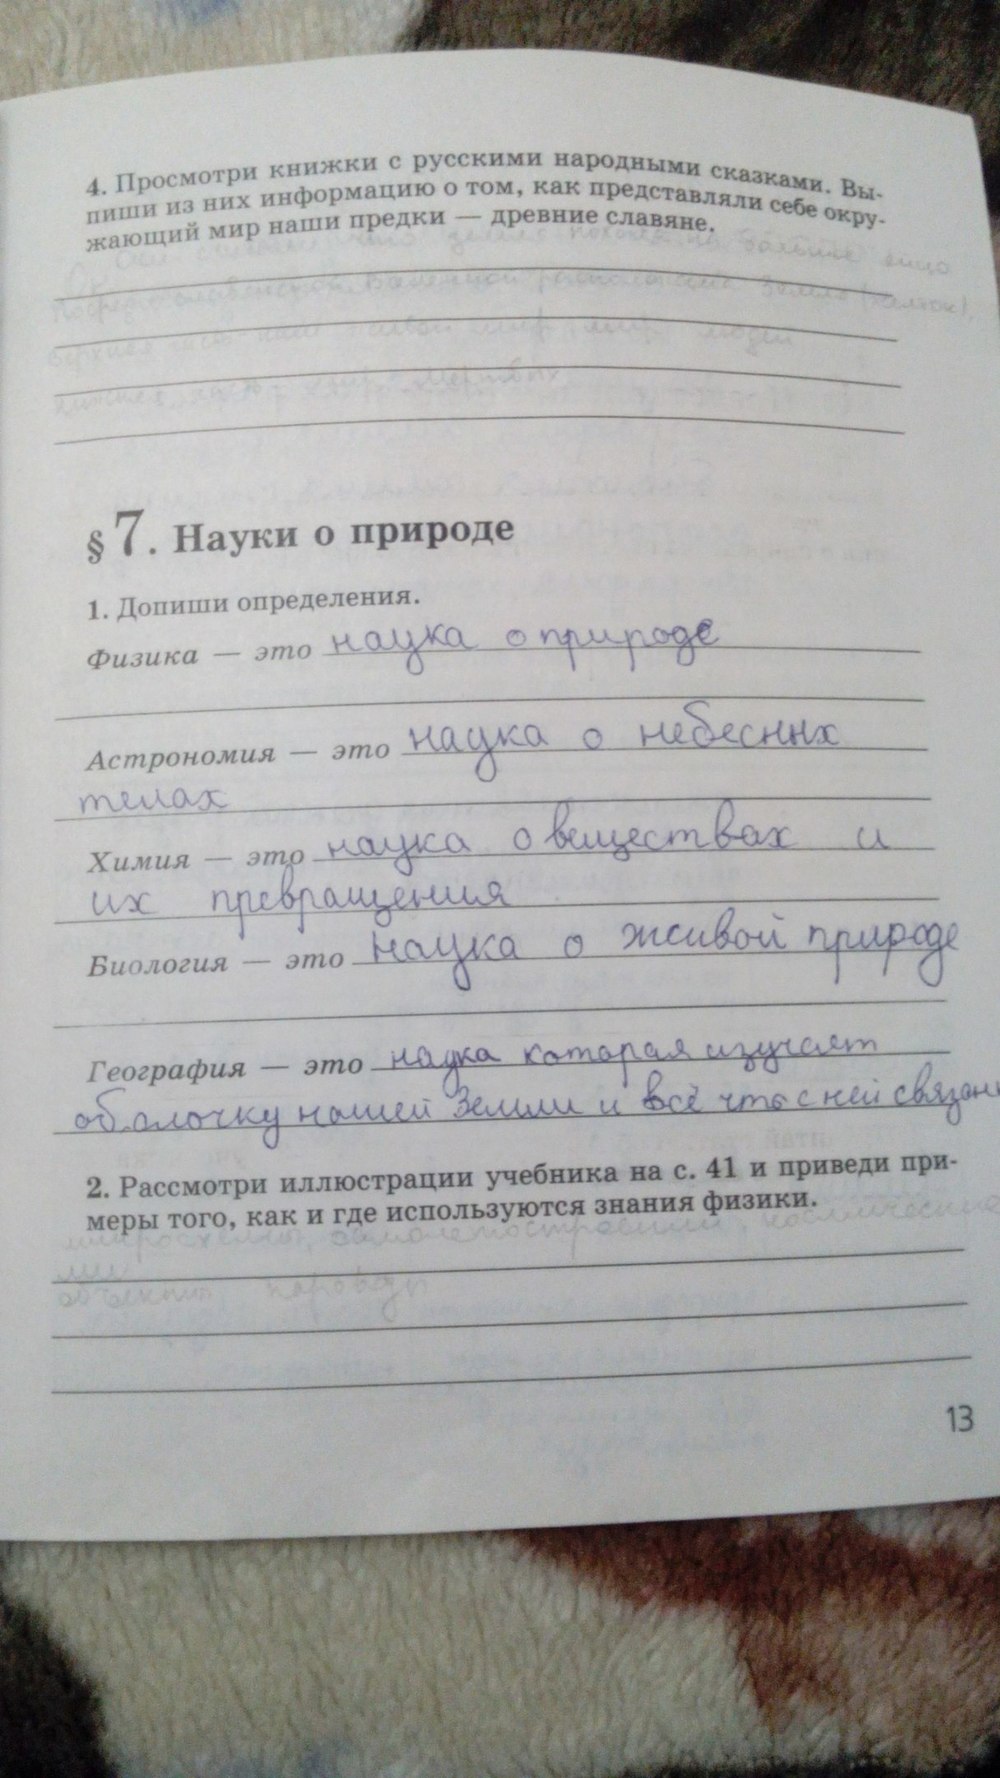 4. Просмотри книжки с русскими народными сказками. Вы-
пиши из них информацию о том, как представляли себе окру-
жающий мир наши предки — древние славяне.
§ 7. Науки о природе
1. Допиши определения.
Физика — это наука о природе
Астрономия — это наука о небесных
телах
Химия — это наука о веществах и
их превращения
Биология — это наука о живой природе
География — это наука которая изучает
оболочку нашей Земли и всё что с ней связан
2. Рассмотри иллюстрации учебника на с. 41 и приведи при-
меры того, как и где используются знания физики.
13